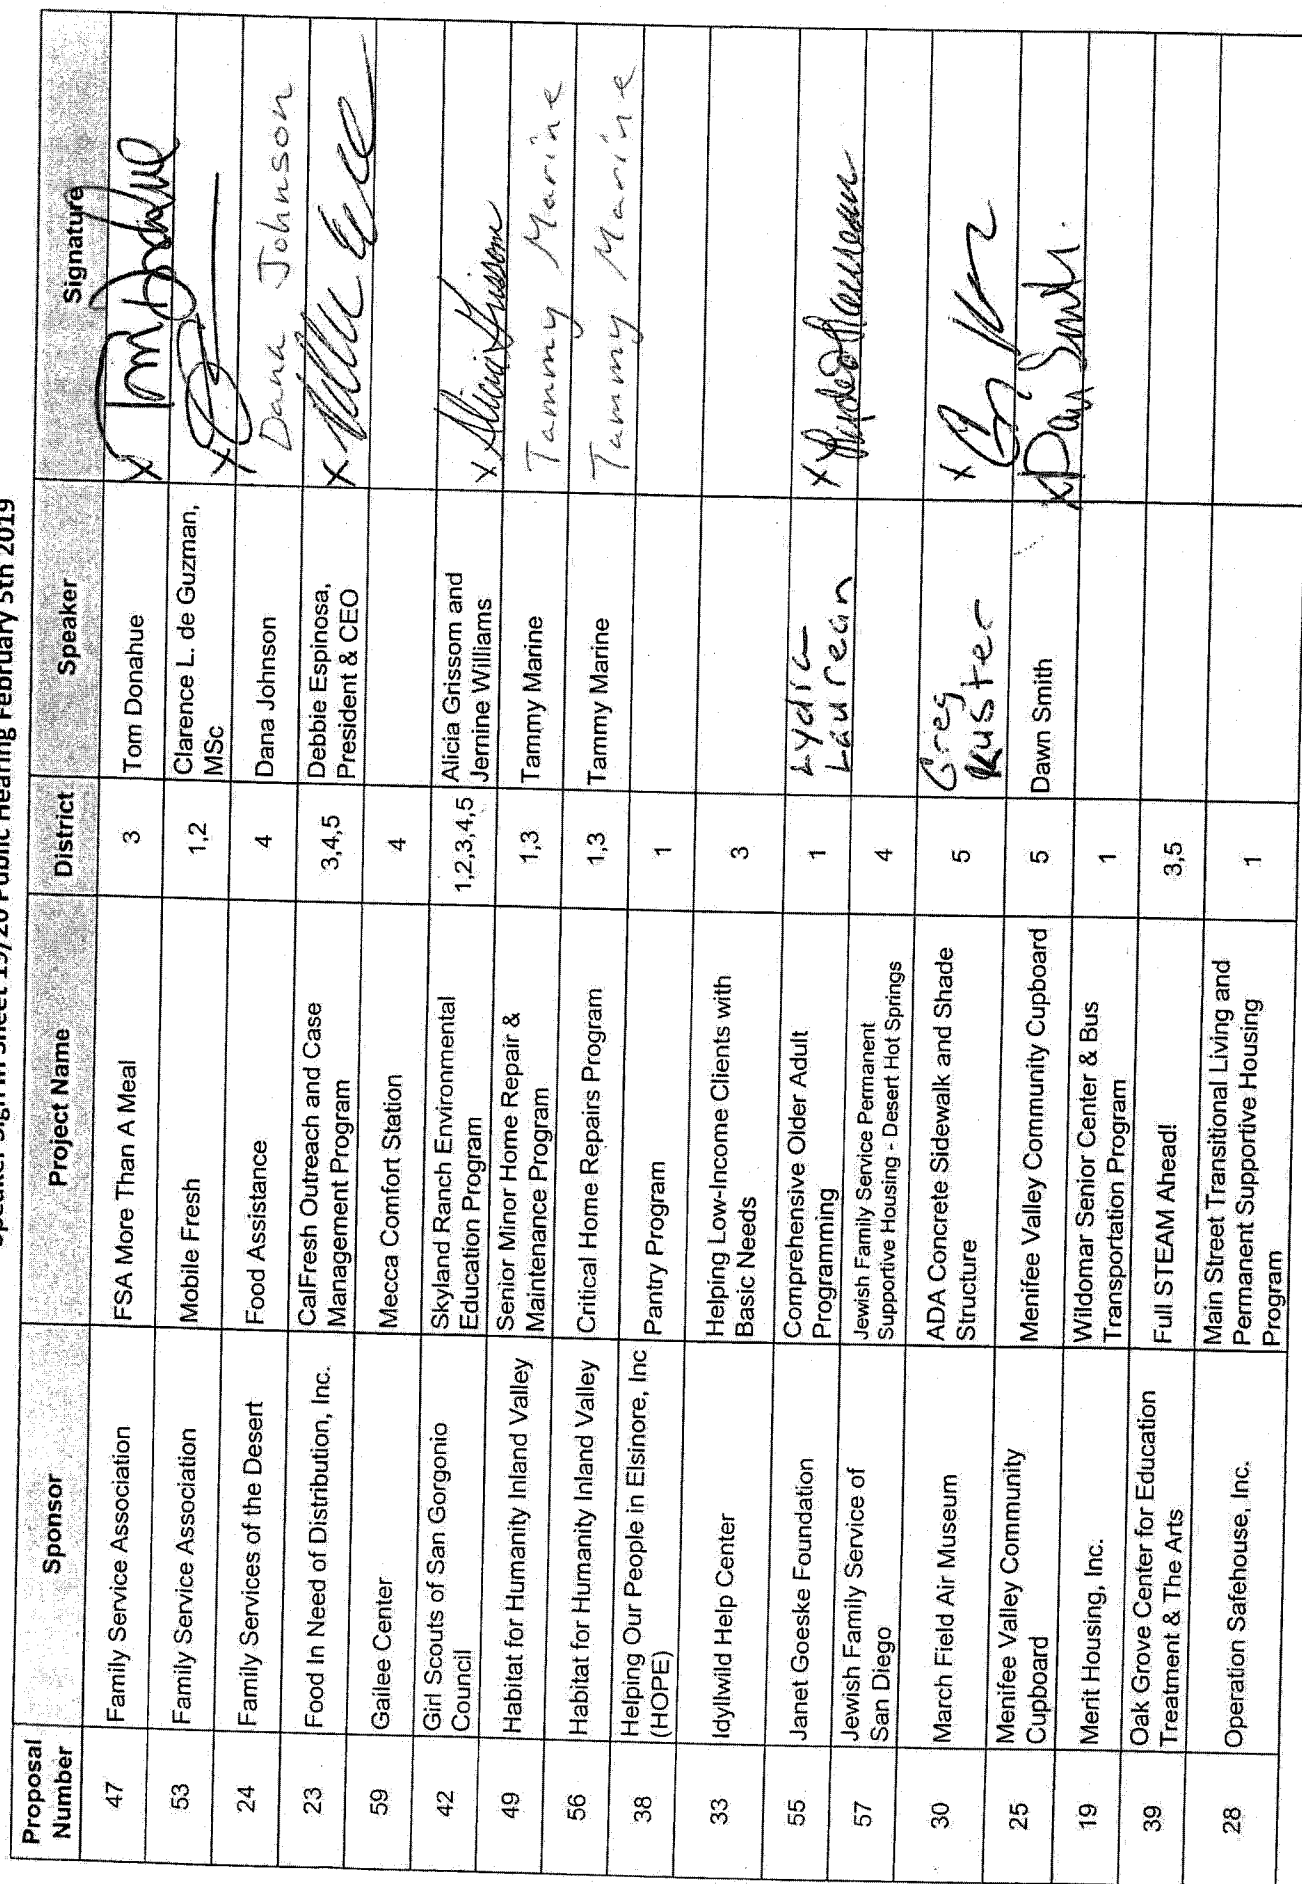 Speaker Sign In Sheet 19/20 Public Hearing February 5th 2019
Proposal Number Sponsor Project Name District Speaker Signature
47 Family Service Association FSA More Than A Meal 3 Tom Donahue x Tom Donahue
53 Family Service Association Mobile Fresh 1,2 Clarence L. de Guzman, MSc x
24 Family Services of the Desert Food Assistance 4 Dana Johnson Dana Johnson
23 Food In Need of Distribution, Inc. CalFresh Outreach and Case Management Program 3,4,5 Debbie Espinosa, President & CEO x
59 Gailee Center Mecca Comfort Station 4
42 Girl Scouts of San Gorgonio Council Skyland Ranch Environmental Education Program 1,2,3,4,5 Alicia Grissom and Jernine Williams x Alicia Grissom
49 Habitat for Humanity Inland Valley Senior Minor Home Repair & Maintenance Program 1,3 Tammy Marine Tammy Marine
56 Habitat for Humanity Inland Valley Critical Home Repairs Program 1,3 Tammy Marine Tammy Marine
38 Helping Our People in Elsinore, Inc (HOPE) Pantry Program 1
33 Idyllwild Help Center Helping Low-Income Clients with Basic Needs 3
55 Janet Goeske Foundation Comprehensive Older Adult Programming 1 Lydia Laurean x
57 Jewish Family Service of San Diego Jewish Family Service Permanent Supportive Housing - Desert Hot Springs 4
30 March Field Air Museum ADA Concrete Sidewalk and Shade Structure 5 Greg Kuster x
25 Menifee Valley Community Cupboard Menifee Valley Community Cupboard 5 Dawn Smith x Dawn Smith
19 Merit Housing, Inc. Wildomar Senior Center & Bus Transportation Program 1
39 Oak Grove Center for Education Treatment & The Arts Full STEAM Ahead! 3,5
28 Operation Safehouse, Inc. Main Street Transitional Living and Permanent Supportive Housing Program 1